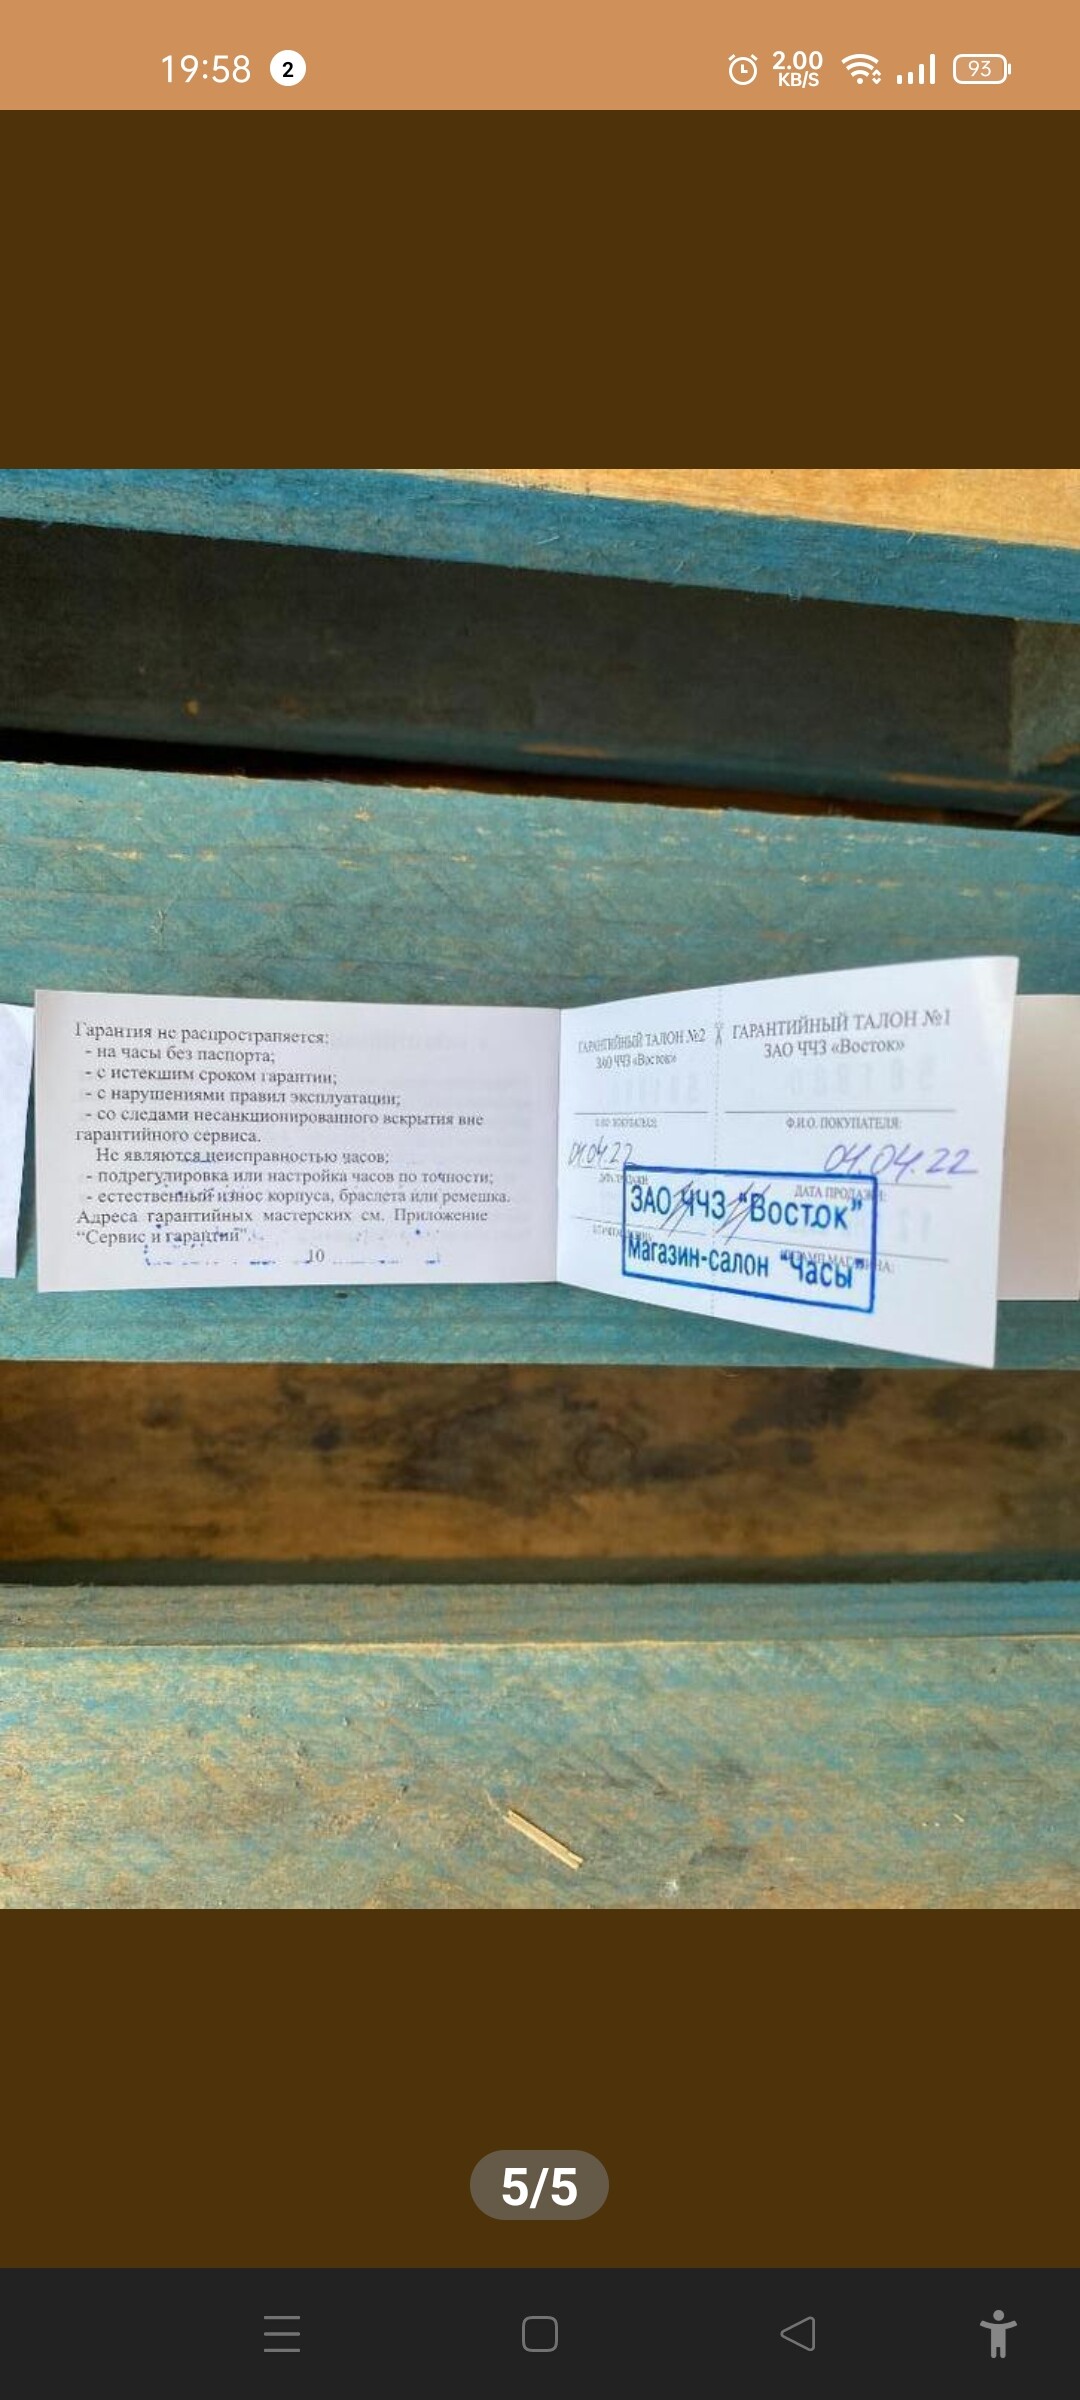 19:58 2
2.00 KB/S
93
Гарантия не распространяется:
- на часы без паспорта;
- с истекшим сроком гарантии;
- с нарушениями правил эксплуатации;
- со следами несанкционированного вскрытия вне
гарантийного сервиса.
Не являются неисправностью часов:
- подрегулировка или настройка часов по точности;
- естественный износ корпуса, браслета или ремешка.
Адреса гарантийных мастерских см. Приложение
“Сервис и гарантии”.
10
ГАРАНТИЙНЫЙ ТАЛОН №2
ЗАО ЧЧЗ «Восток»
04.04.22
ГАРАНТИЙНЫЙ ТАЛОН №1
ЗАО ЧЧЗ «Восток»
Ф.И.О. ПОКУПАТЕЛЯ:
04.04.22
ДАТА ПРОДАЖИ:
ЗАО ЧЧЗ “Восток”
Магазин-салон “Часы”
5/5